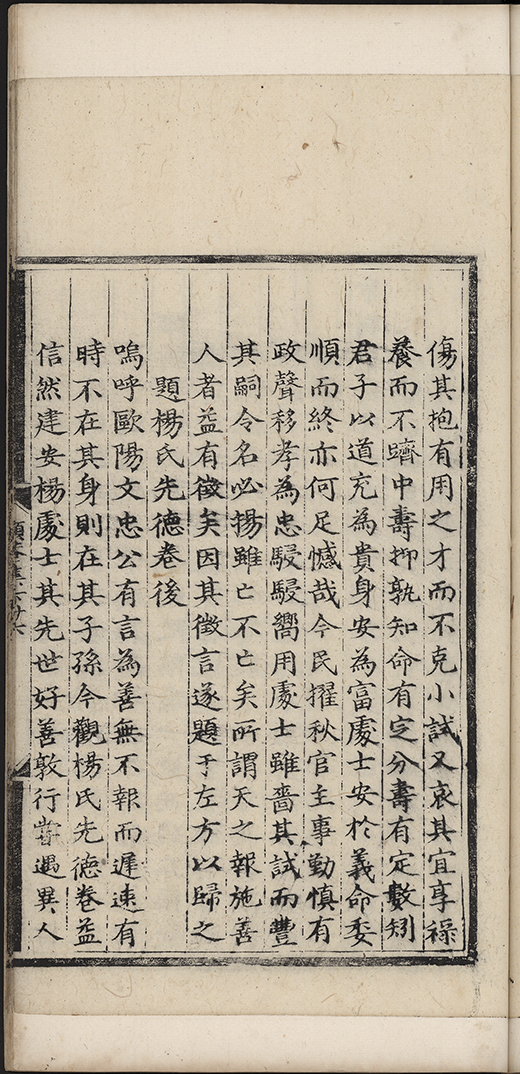 傷其抱有用之才而不克小試又哀其宜享祿
養而不躋中壽抑孰知命有定分壽有定數矧
君子以道充為貴身安為富處士安於義命委
順而終亦何足憾哉今民擢秋官主事勤慎有
政聲移孝為忠駸駸嚮用處士雖嗇其試而豐
其嗣令名必揚雖亡不亡矣所謂天之報施善
人者益有徵矣因其徵言遂題于左方以歸之
題楊氏先德卷後
嗚呼歐陽文忠公有言為善無不報而遲速有
時不在其身則在其子孫今觀楊氏先德卷益
信然建安楊處士其先世好善敦行嘗遇異人